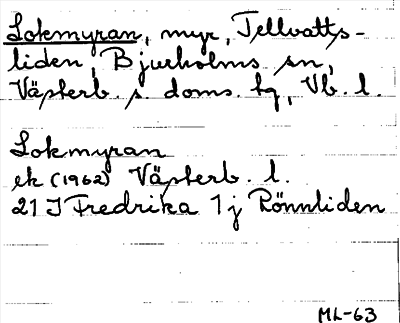 Lokmyran, myr, Tellvatts-
liden, Bjurholms sn,
Västerb. s. doms. hq, Vb. l.
Lokmyran
ek (1962) Västerb. l.
21 J Fredrika 1 j Rönnliden
ML-63